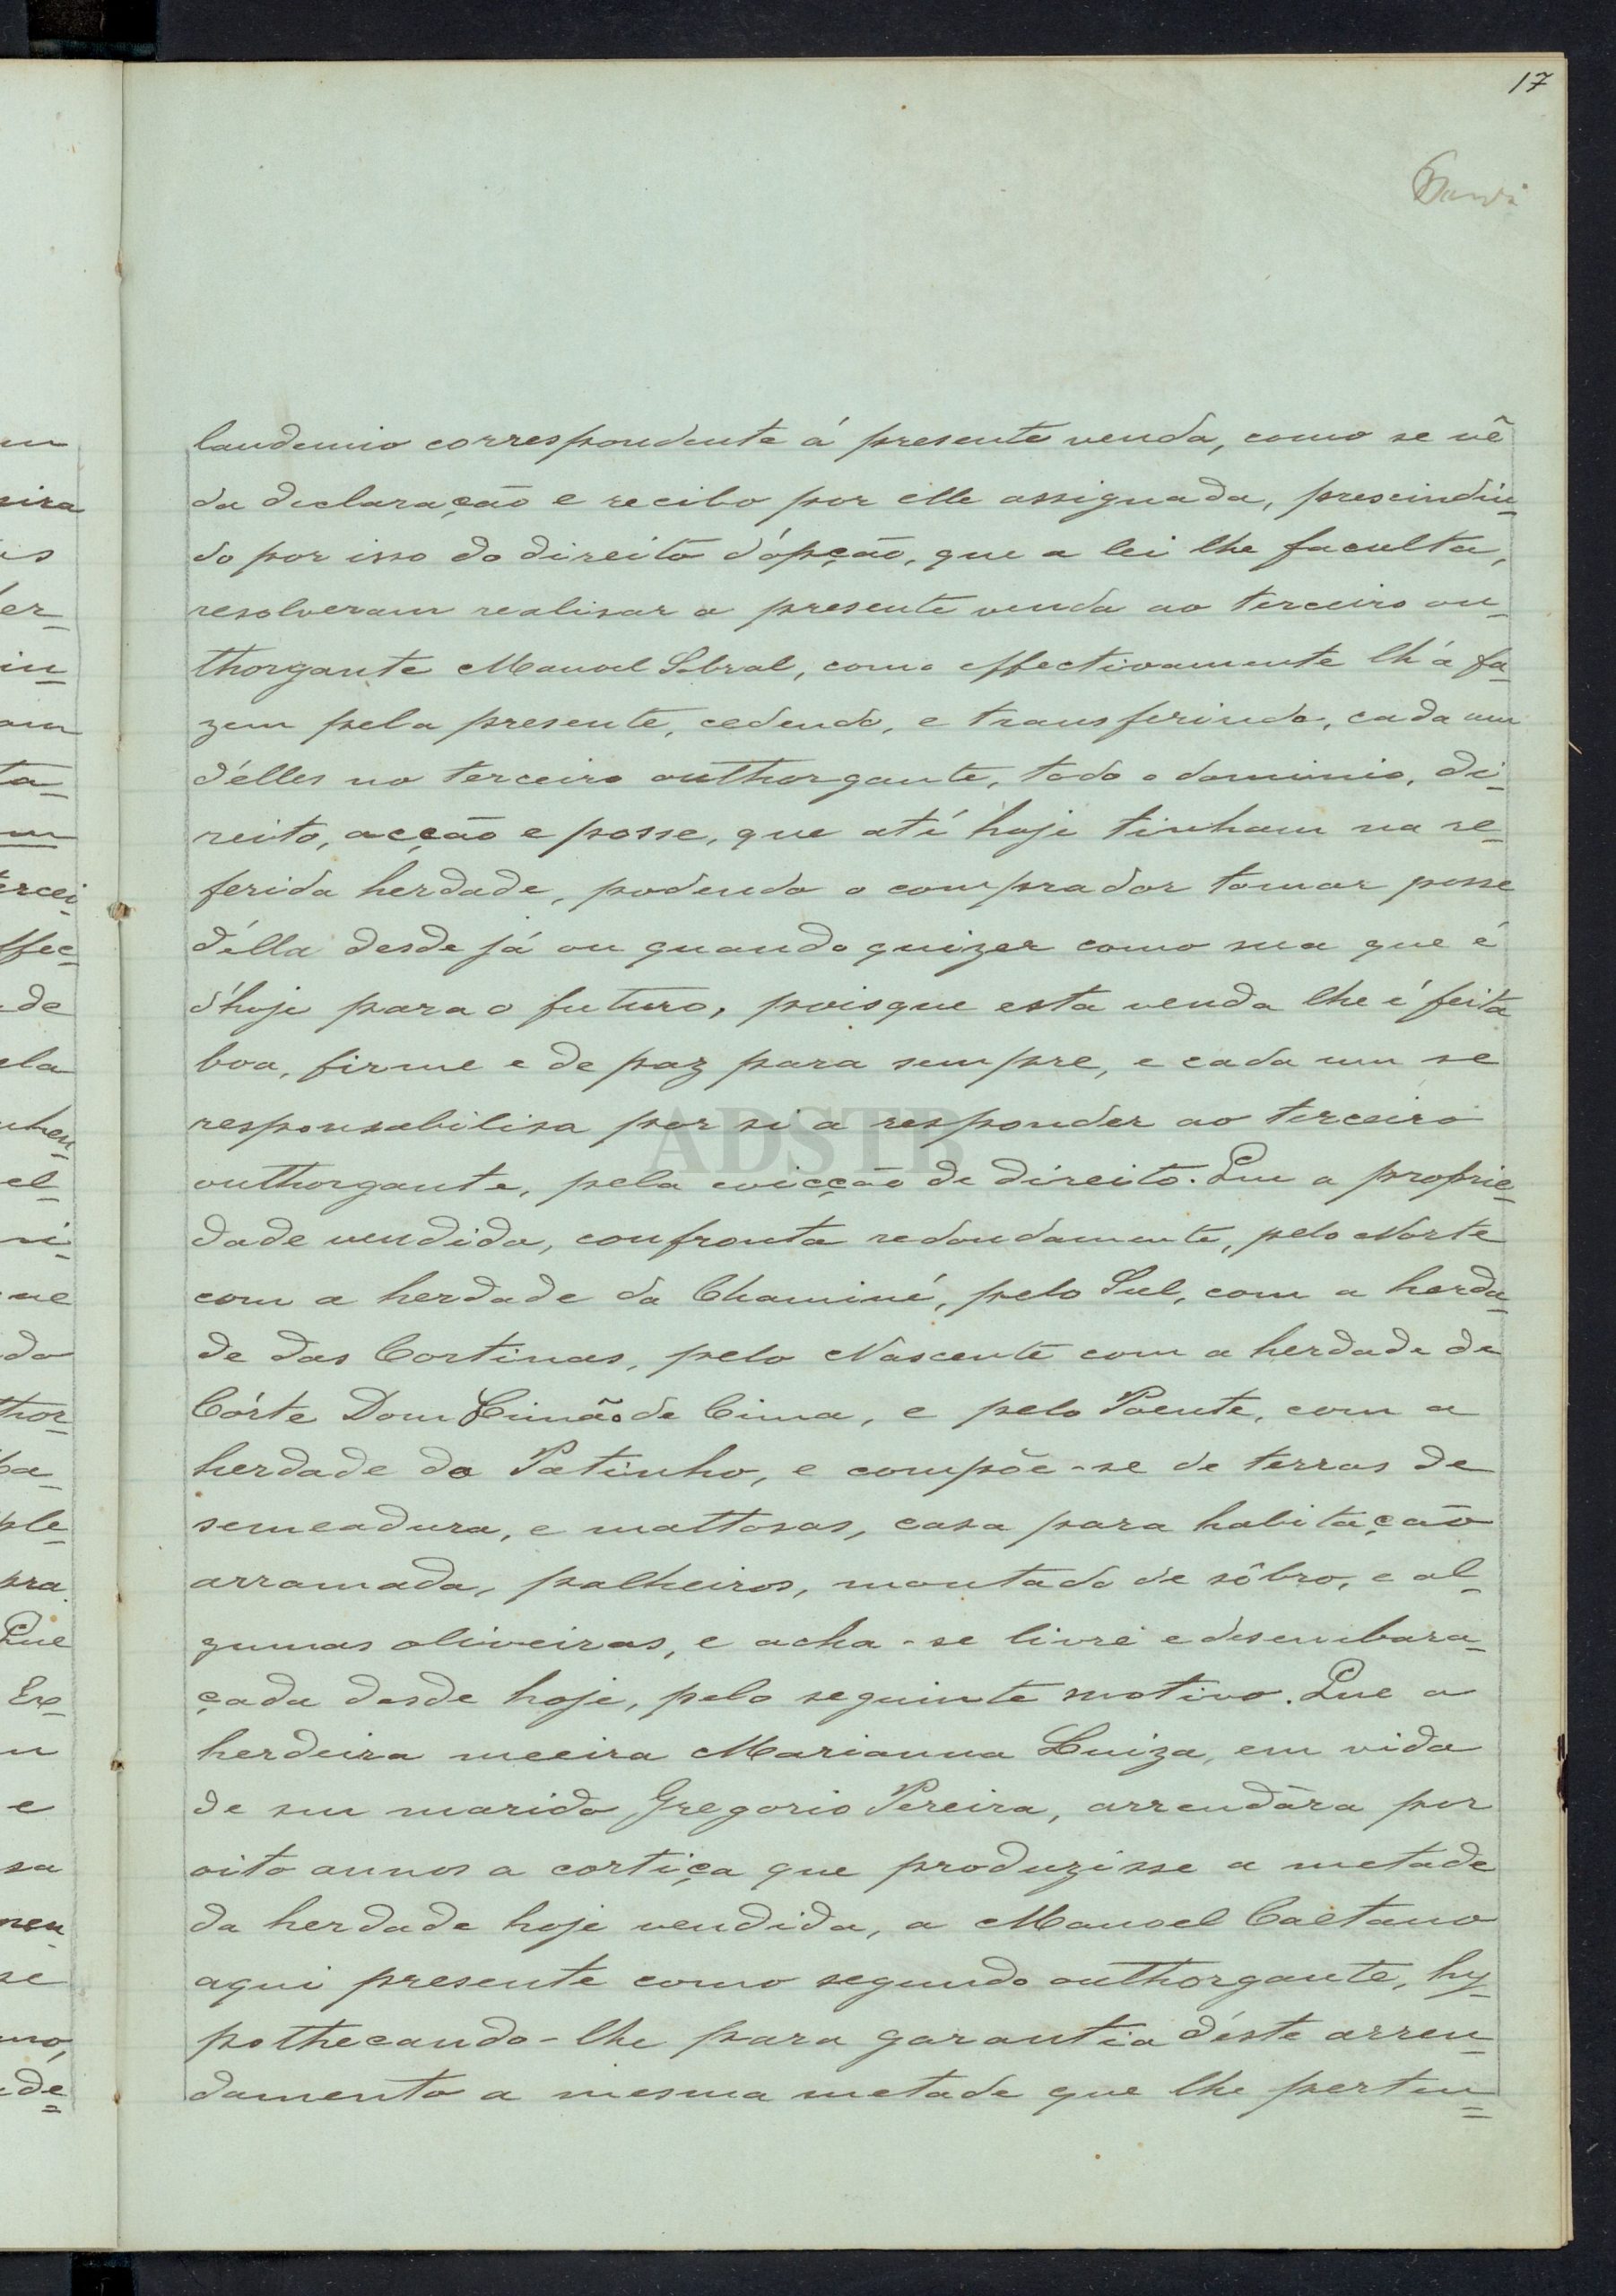 17
laudemio correspondente á presente venda, como se vê
da declaração e recibo por elle assignada, prescindin-
do por isso do direito d'ópção, que a lei lhe faculta,
resolveram realisar a presente venda ao terceiro ou-
thorgante Manoel Sobral, como effectivamente lh'a fa-
zem pela presente, cedendo, e transferindo, cada um
d'élles no terceiro outhorgante, todo o dominio, di-
reito, acção e posse, que até hoje tinham na re-
ferida herdade, podendo o comprador tomar posse
d'élla desde já ou quando quizer como sua que é
d'hoje para o futuro, poisque esta venda lhe é feita
boa, firme e de paz para sempre, e cada um se
responsabilisa por si a responder ao terceiro
outhorgante, pela evicção de direito. Que a proprie-
dade vendida, confronta redondamente, pelo Norte
com a herdade da Chaminé, pelo Sul, com a herda-
de das Cortinas, pelo Nascente com a herdade de
Córte Dom Simão de Cima, e pelo Poente, com a
herdade do Patinho, e compõe-se de terras de
semeadura, e mattosas, casa para habitação
arramada, palheiros, montado de sôbro, e al-
gumas oliveiras, e acha-se livre e desembara-
çada desde hoje, pelo seguinte motivo. Que a
herdeira meeira Marianna Luiza, em vida
de seu marido Gregorio Pereira, arrendára por
oito annos a cortiça que produzisse a metade
da herdade hoje vendida, a Manoel Caetano
aqui presente como segundo outhorgante, hy-
pothecando-lhe para garantia d'éste arren-
damento a mesma metade que lhe perten=
ADSTB